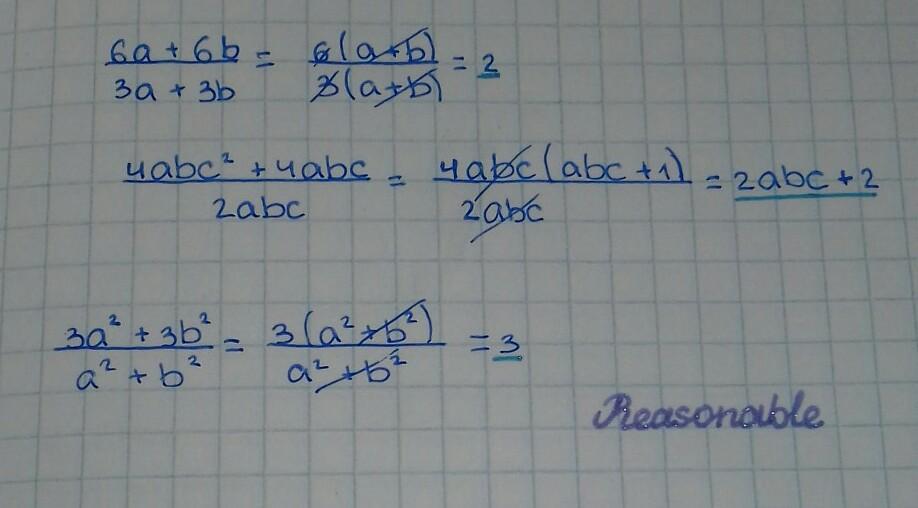 6a + 6b / 3a + 3b = 6(a+b) / 3(a+b) = 2
4abc² + 4abc / 2abc = 4abc(abc + 1) / 2abc = 2abc + 2
3a² + 3b² / a² + b² = 3(a² + b²) / a² + b² = 3
Reasonable